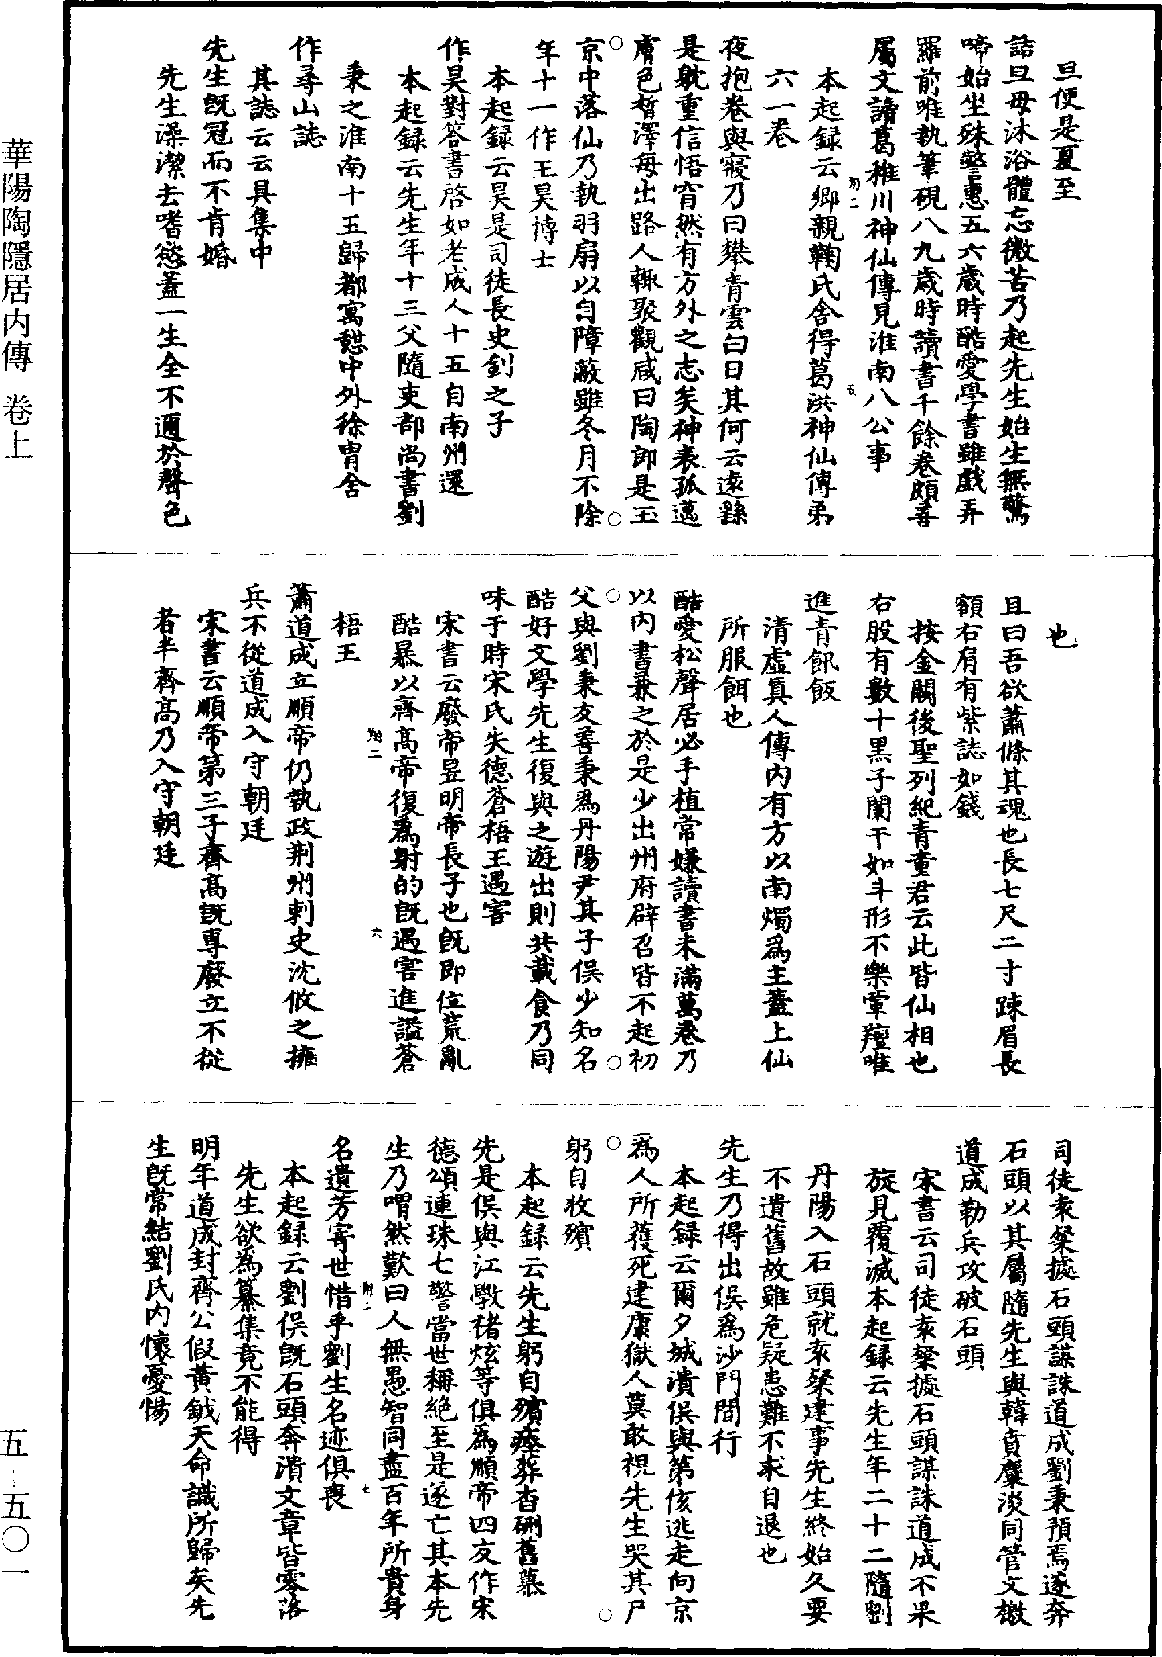 旦便是夏至
詰旦母沐浴體忘微苦乃起先生始生無驚
啼始坐殊警惠五六歲時酷愛學書雖戲弄
羅前唯執筆硯八九歲時讀書千餘卷頗善
屬文讀葛稚川神仙傳見淮南八公事
本起録云鄉親鞠氏舍得葛洪神仙傳弟
六一卷
夜抱卷與寢乃曰攀青雲白日其何云遠繇
是躭重信悟窅然有方外之志矣神表孤邁
膚色皙澤每出路人輙聚觀咸曰陶郎是玉
京中落仙乃執羽扇以自障蔽雖冬月不除
年十一作王昊博士
本起録云昊是司徒長史釗之子
作昊對答書啓如老成人十五自南州還
本起録云先生年十三父隨吏部尚書劉
秉之淮南十五歸都寓憇中外徐胄舍
作尋山誌
其誌云云具集中
先生旣冠而不肯婚
先生澡潔去嗜慾蓋一生全不邇於聲色
也
且曰吾欲蕭條其魂也長七尺二寸踈眉長
額右肩有紫誌如錢
按金闕後聖列紀青童君云此皆仙相也
右股有數十黑子闌干如斗形不樂葷羶唯
進青飢飯
清虛真人傳内有方以南燭爲主蓋上仙
所服餌也
酷愛松聲居必手植常嫌讀書未滿萬卷乃
以内書兼之於是少出州府辟召皆不起初
父與劉秉友善秉爲丹陽尹其子俁少知名
酷好文學先生復與之遊出則共載食乃同
味于時宋氏失德蒼梧王遇害
宋書云廢帝昱明帝長子也旣即位荒亂
酷暴以齊高帝復爲射的旣遇害進謚蒼
梧王
蕭道成立順帝仍執政荆州刺史沈攸之擁
兵不從道成入守朝廷
宋書云順帝第三子齊高旣專廢立不從
者半齊高乃入守朝廷
司徒袁粲據石頭謀誅道成劉秉預焉遂奔
石頭以其屬隨先生與韓賁麋淡同管文檄
道成勒兵攻破石頭
宋書云司徒袁粲據石頭謀誅道成不果
旋見覆滅本起録云先生年二十二隨劉
丹陽入石頭就袁粲建事先生終始久要
不遺舊故雖危疑患難不求自退也
先生乃得出俁爲沙門間行
本起録云爾夕城潰俁與第侅逃走向京
爲人所獲死建康獄人莫敢視先生哭其尸
躬自收殯
本起録云先生躬自殯瘞葬杳硎舊墓
先是俁與江斆禇炫等俱爲順帝四友作宋
德頌連珠七警當世稱絶至是遂亡其本先
生乃喟然歎曰人無愚智同盡百年所貴身
名遺芳寄世惜乎劉生名迹俱喪
本起録云劉俁旣石頭奔潰文章皆零落
先生欲爲纂集竟不能得
明年道成封齊公假黃鉞天命識所歸矣先
生旣常結劉氏内懷憂惕
華陽陶隱居内傳 卷上
五－五〇一